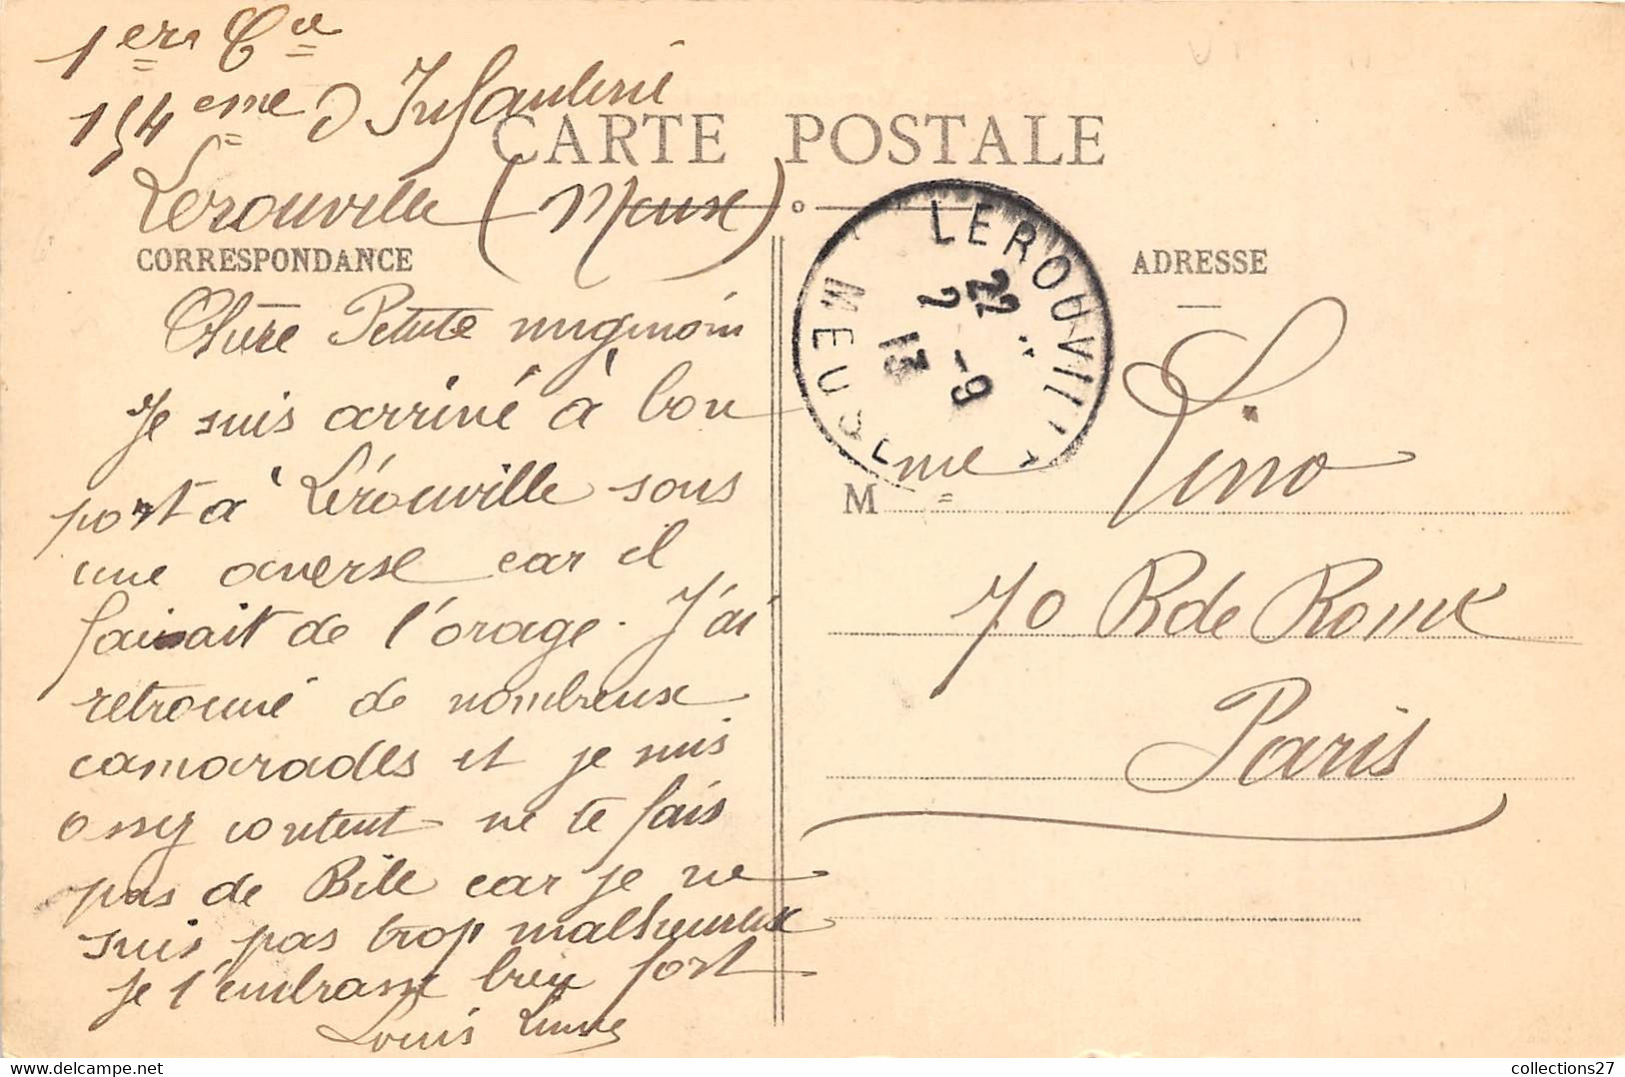 1er Cie
154eme d Infanterie
CARTE POSTALE
Lerouville (Meuse)
CORRESPONDANCE
ADRESSE
LEROUVILLE
22
7 -9
13
MEUSE
Chère Petite mignoin
Je suis arrivé à bon
port a' Lérouville sous
une averse car il
faisait de l'orage. J'ai
retrouvé de nombreux
camarades et je suis
assez content ne te fais
pas de Bile car je ne
suis pas trop malheureux
Je t'embrasse bien fort
Louis
Mme Lino
70 R de Rome
Paris
collections27